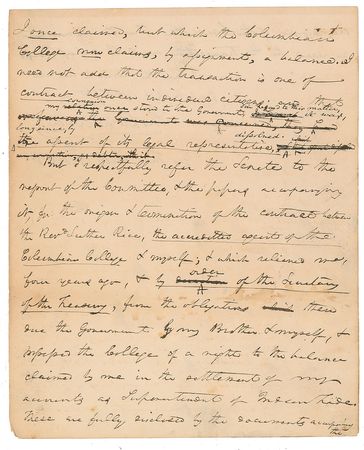 I once claimed, but which the Columbian
College now claims, by assignment, a balance. I
need not add that the transaction is one of
contract between individual citizens, and that
my connexion once stood to the Government, in regard to this matter,
long since, by dissolved
the assent of its legal representatives,
But I respectfully refer the Senate to the
report of the Committee, & the papers accompanying
it for the origin & termination of the contract between
the Revd. Luther Rice, the accredited agent of the
Columbian College & myself; & which relieved me,
four years ago, & by order of the Secretary
of the Treasury, from the obligations then
due the Government by my Brother & myself, &
possessed the College of a right to the balance
claimed by me in the settlement of my
accounts as Superintendent of Indian Trade.
These are fully disclosed by the documents accompanying
the